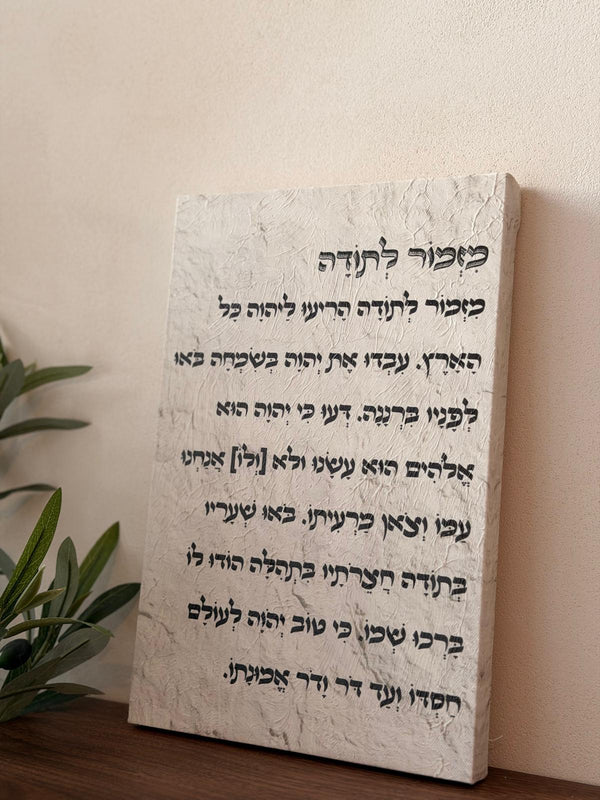 מִזְמוֹר לְתוֹדָה
מִזְמוֹר לְתוֹדָה הָרִיעוּ לַיהוָה כָּל
הָאָרֶץ. עִבְדוּ אֶת יְהוָה בְּשִׂמְחָה בֹּאוּ
לְפָנָיו בִּרְנָנָה. דְּעוּ כִּי יְהוָה הוּא
אֱלֹהִים הוּא עָשָׂנוּ וּלֹא [וְלוֹ] אֲנַחְנוּ
עַמּוֹ וְצֹאן מַרְעִיתוֹ. בֹּאוּ שְׁעָרָיו
בְּתוֹדָה חֲצֵרֹתָיו בִּתְהִלָּה הוֹדוּ לוֹ
בָּרְכוּ שְׁמוֹ. כִּי טוֹב יְהוָה לְעוֹלָם
חַסְדּוֹ וְעַד דֹּר וָדֹר אֱמוּנָתוֹ.